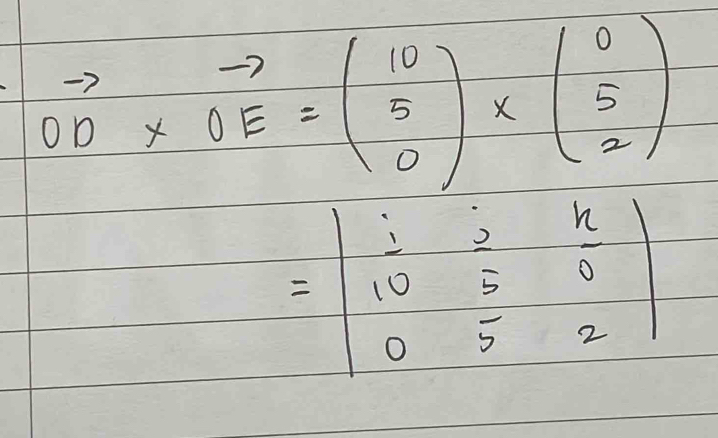 → →
OD × OE = (10 5 0) × (0 5 2)
= | i j k |
| 10 5 0 |
| 0 5 2 |